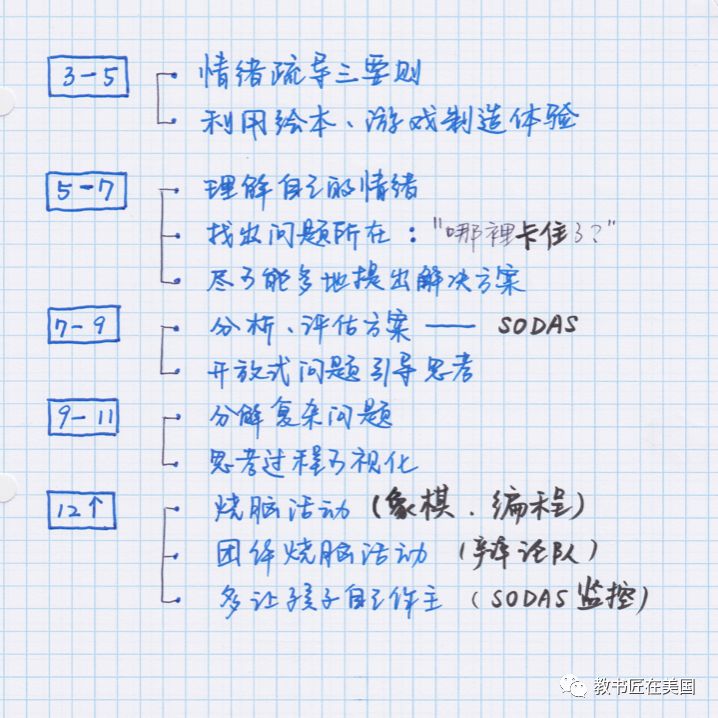 3-5 情绪疏导三要则
利用绘本、游戏制造体验
5-7 理解自己的情绪
找出问题所在："哪裡卡住了？"
尽可能多地提出解决方案
7-9 分析、评估方案 —— SODAS
开放式问题引导思考
9-11 分解复杂问题
思考过程可视化
12↑ 烧脑活动（象棋．编程）
团体烧脑活动（辩论队）
多让孩子自己作主（SODAS监控）
教书匠在美国